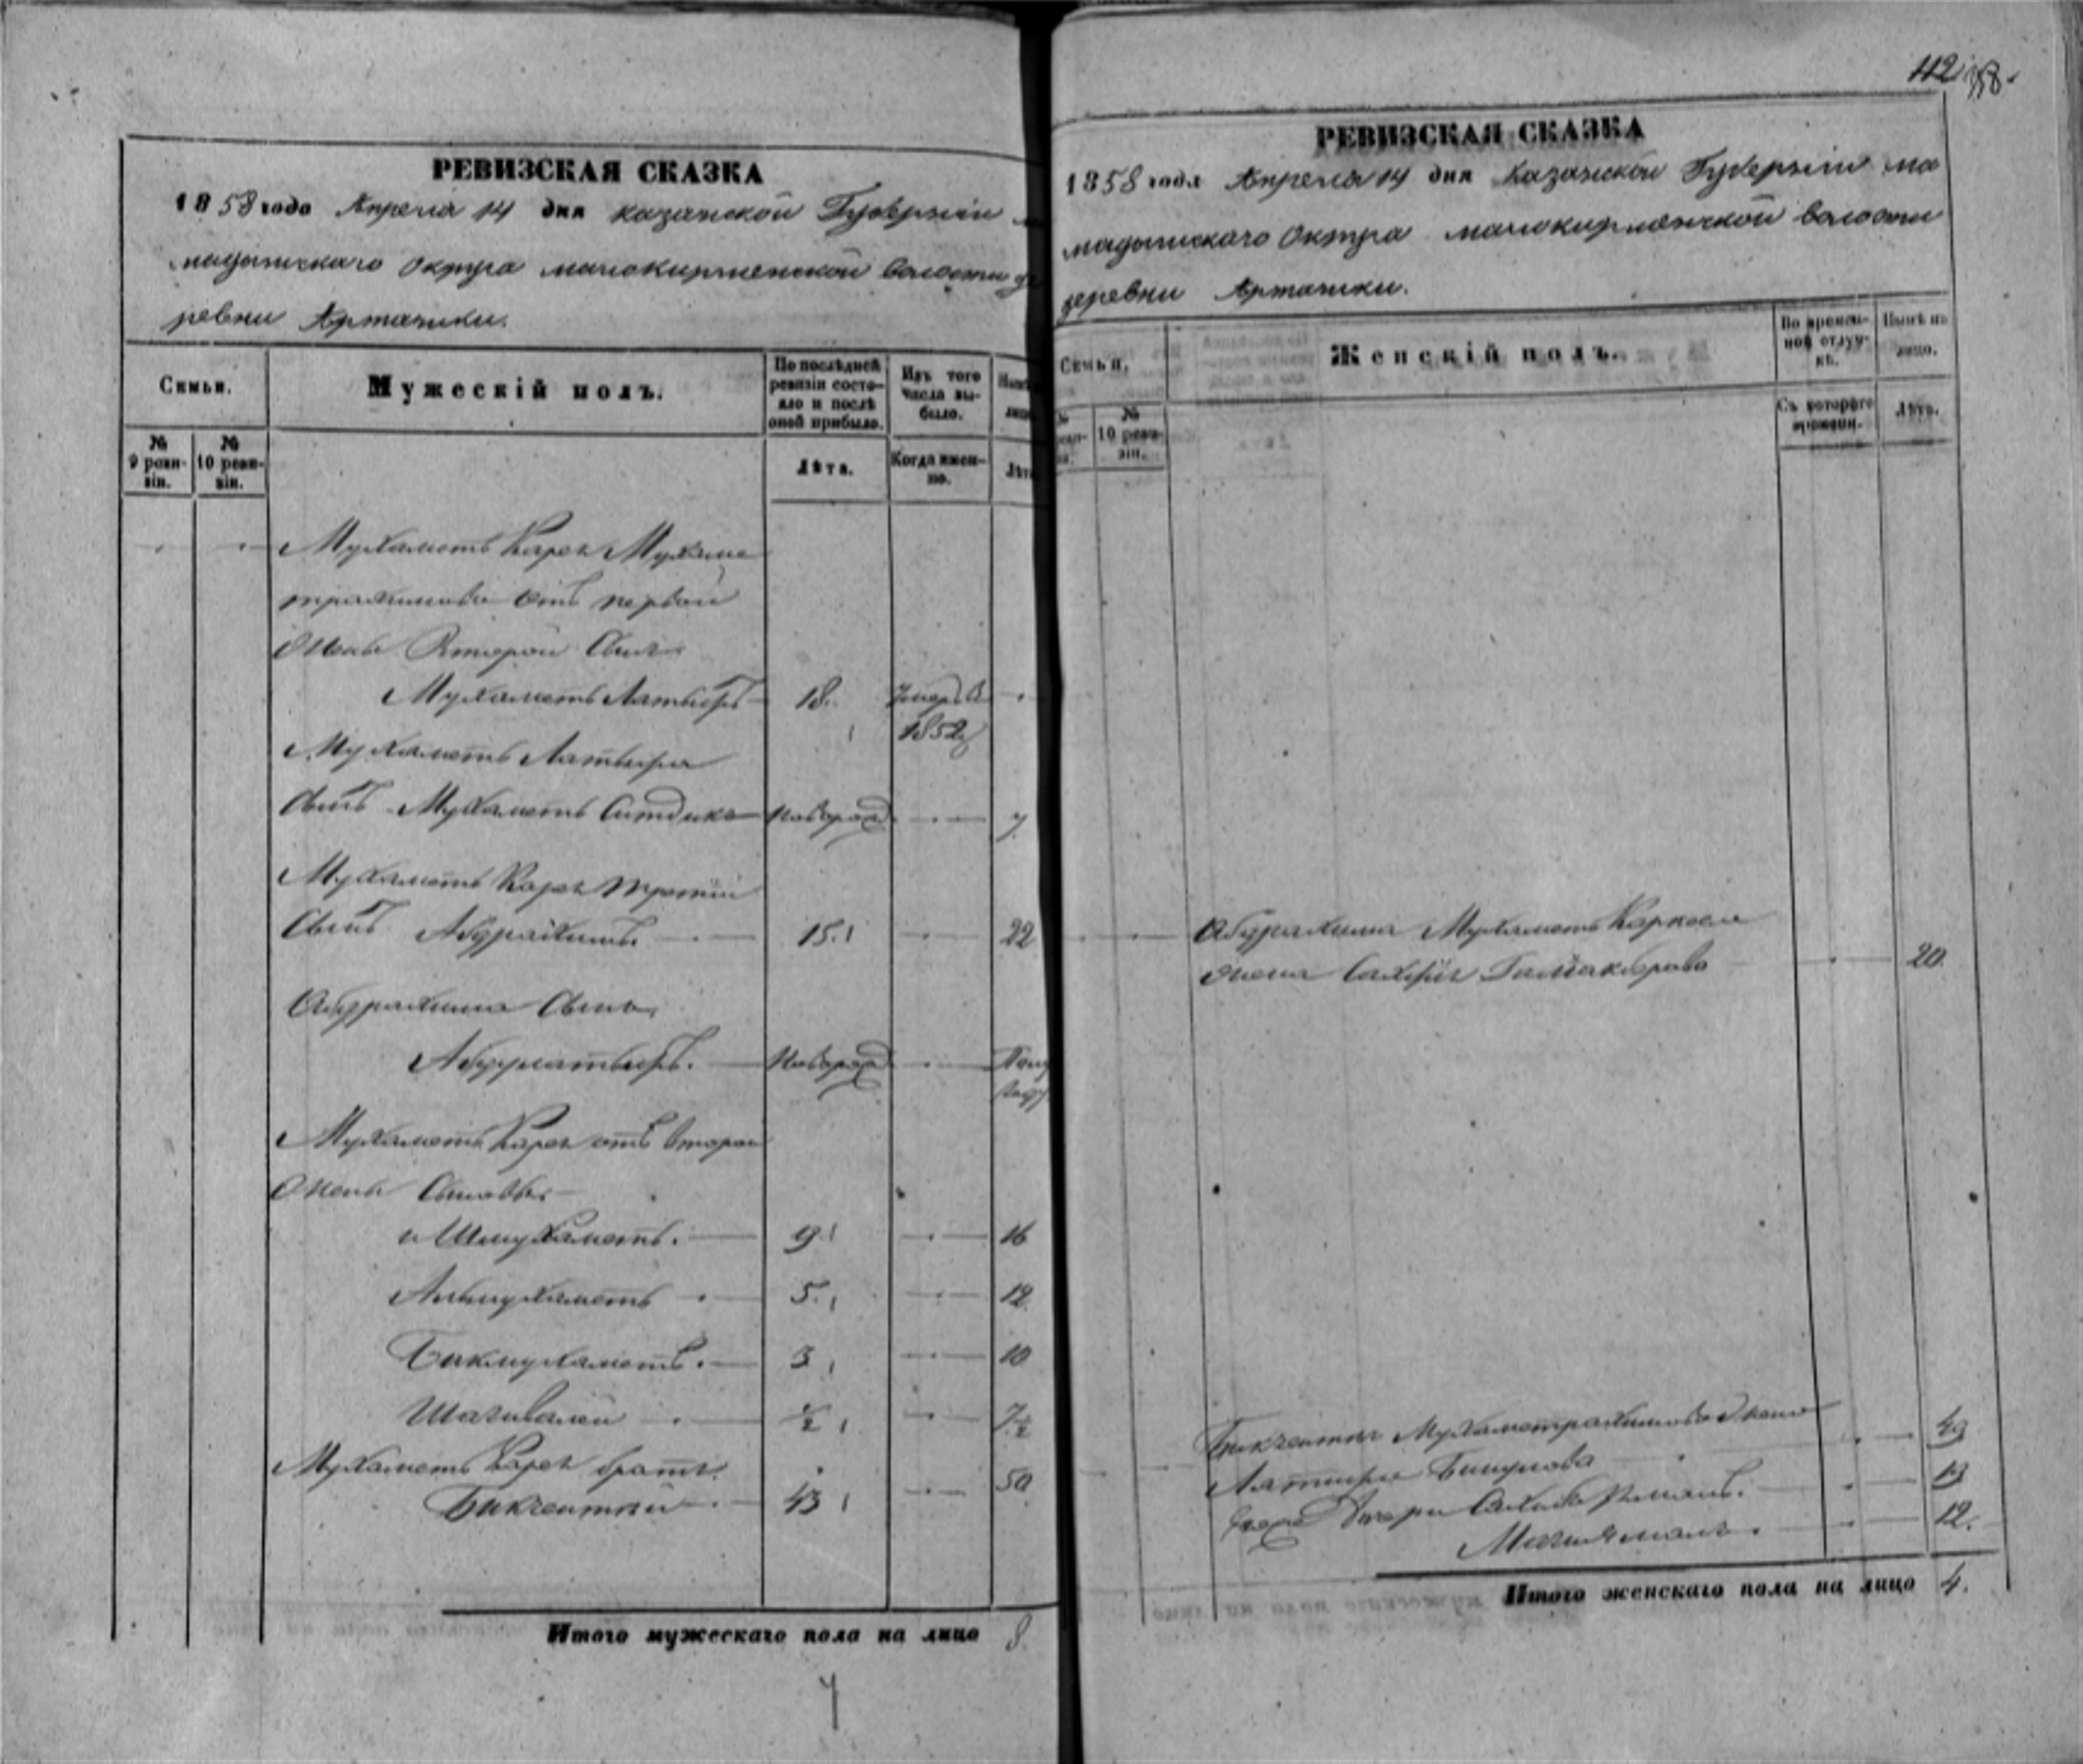 РЕВИЗСКАЯ СКАЗКА
1858 года Апреля 14 дня Казанской Губернiи
мадышскаго Округа малокирменской волости де
ревни Артачики.
Семьи.
Мужескiй полъ.
По послѣдней ревизiи состояло и послѣ оной прибыло.
Изъ того числа выбыло.
№ 9 ревизiи.
№ 10 ревизiи.
Лѣта.
Когда именно.
Лѣта
Мухаметь Карея Мухаме
трахимова отъ первой
жены Второй Сынъ
Мухаметь Латыпъ 18. Умеръ в
1852
Мухаметь Латыпа
Сынъ Мухаметь Ситдикъ Новорож 7
Мухаметь Карея третiй
Сынъ Абдрахимъ. 15. 22
Абдрахима Сынъ
Новорож Полу
году
Мухаметь Карея отъ второй
жены Сыновья
Шимухаметь. 9 16
Альмухаметь 5. 12
Бикмухаметь. 3 10
Шагивалей ½ 7½
Мухаметь Карея братъ
Бикчентей 43 50
Итого мужескаго пола на лицо 8.
4
112
РЕВИЗСКАЯ СКАЗКА
1858 года Апреля 14 дня Казанской Губернiи ма
мадышскаго Округа малокирменской волости
деревни Артачики.
Семьи.
Женскiй полъ.
Во временной отлучкѣ.
Нынѣ на лицо.
№ 10 ревизiи.
Съ котораго времени.
Лѣта.
Абдрахима Мухаметь
жена 20.
Бикчентея Мухаметрахимова жена
49
дочери 13
12.
Итого женскаго пола на лицо 4.